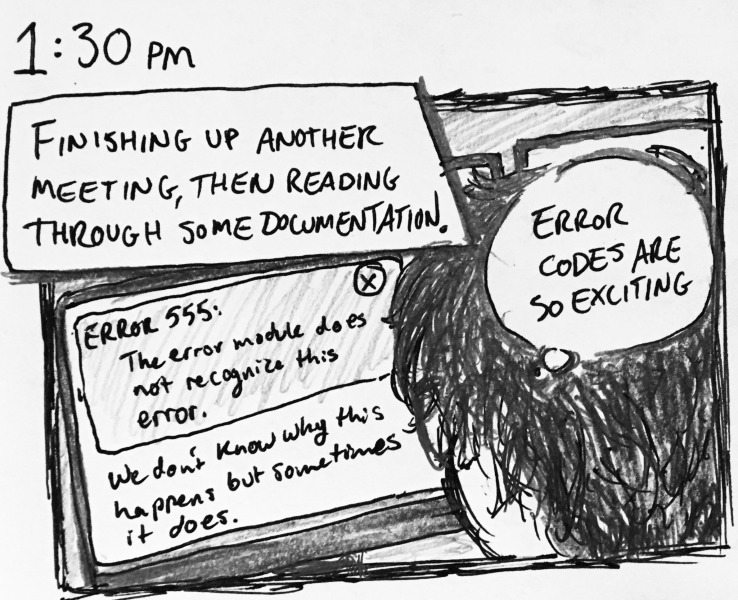 1:30 PM
FINISHING UP ANOTHER
MEETING, THEN READING
THROUGH SOME DOCUMENTATION.
ERROR 555:
The error module does
not recognize this
error.
We don't know why this
happens but sometimes
it does.
ERROR
CODES ARE
SO EXCITING